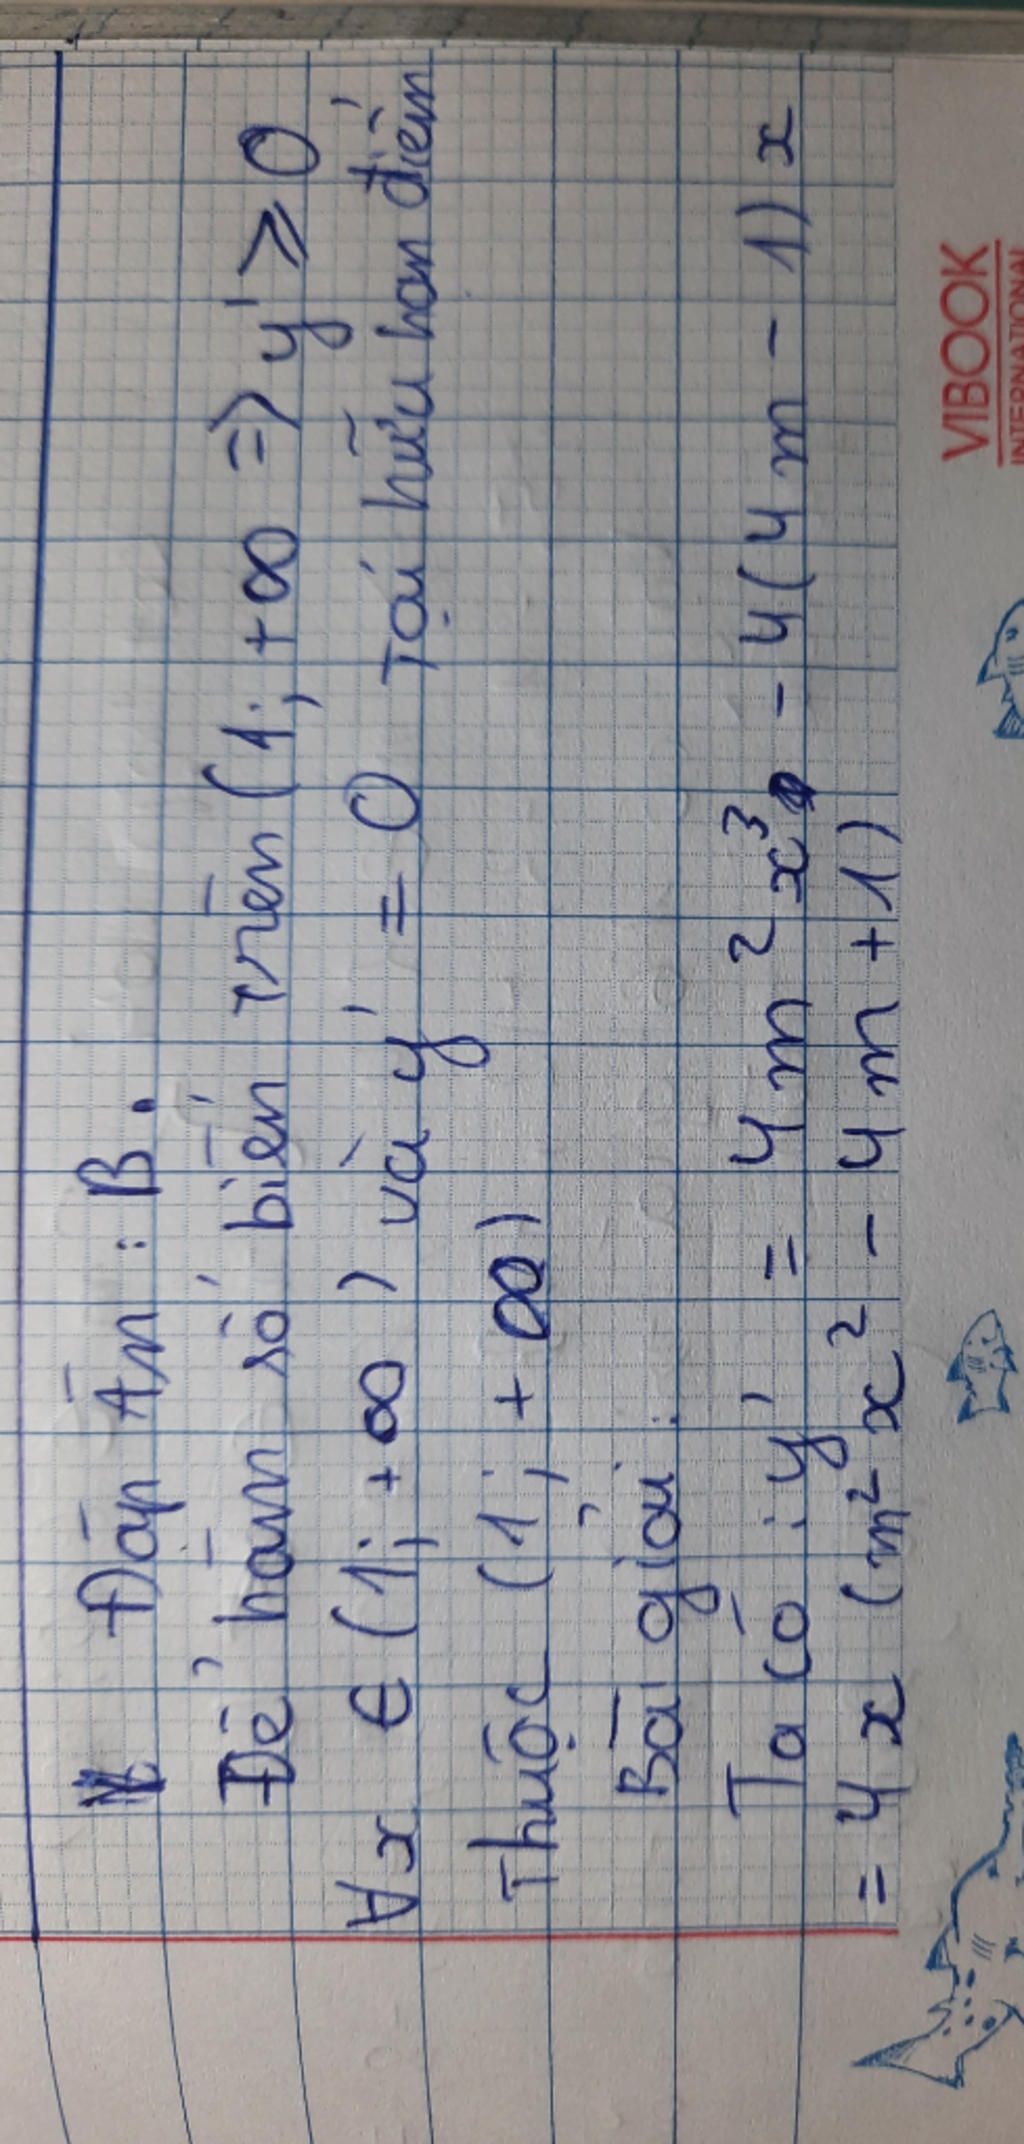 Đáp Án : B.
Để hàm số biến trên (1; +∞ => y' ≥ 0
∀x ∈ (1; +∞) và y' = 0 Tại hữu hạn điểm
Thuộc (1; +∞)
Bài giải:
Ta có : y' = 4m²x³ - 4(4m - 1)x
= 4x (m² x² - 4m + 1)
VIBOOK
INTERNATIONAL